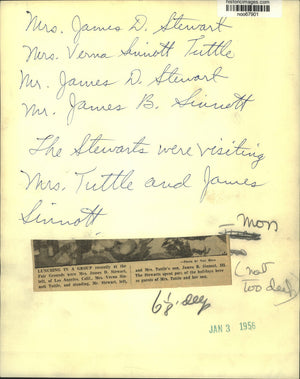 historicimages.com
Mrs. James D. Stewart
Mrs. Verna Sinnott Tuttle
Mr. James D. Stewart
Mr. James B. Sinnott
The Stewarts were visiting
Mrs. Tuttle and James
Sinnott
Mon
(not
too deep)
LUNCHING IN A GROUP recently at the
Fair Grounds were Mrs. James D. Stewart,
left, of Los Angeles, Calif., Mrs. Verna Sin-
nott Tuttle and standing, Mr. Stewart, left,
and Mrs. Tuttle's son, James B. Sinnott, III.
The Stewarts spent part of the holidays here
as guests of Mrs. Tuttle and her son.
6 1/8" deep
JAN 3 1956